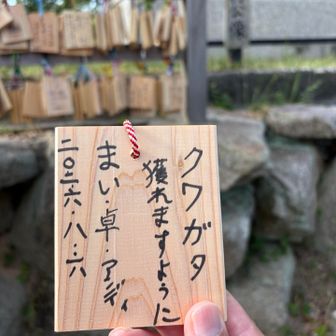 クワガタ
獲れますように
まい・卓・アンディ
二〇二六・八・六